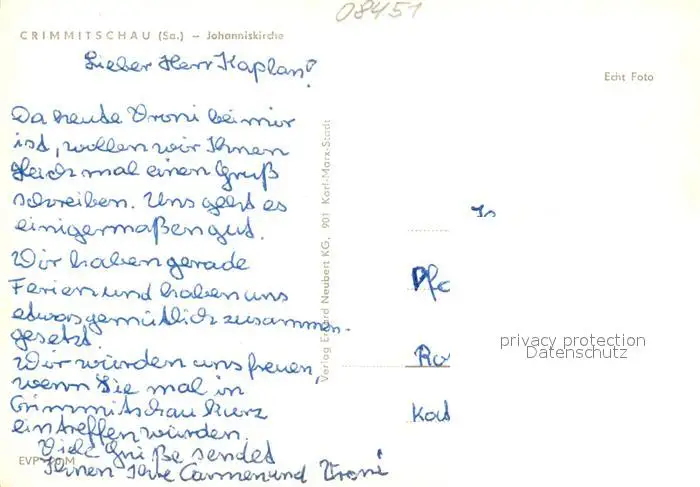 08451
CRIMMITSCHAU (Sa.) – Johanniskirche
Lieber Herr Kaplan!
Echt Foto
Da heute Vroni bei mir
ist, wollen wir Ihnen
gleich mal einen Gruß
schreiben. Uns geht es
einigermaßen gut.
Wir haben gerade
Ferien und haben uns
etwas gemütlich zusammen-
gesetzt.
Wir würden uns freuen,
wenn Sie mal in
Crimmitschau kurz
eintreffen würden.
Viele Grüße sendet
Ihnen Ihre Carmen und Vroni
EVP
Verlag Erhard Neubert KG, 901 Karl-Marx-Stadt
privacy protection
Datenschutz